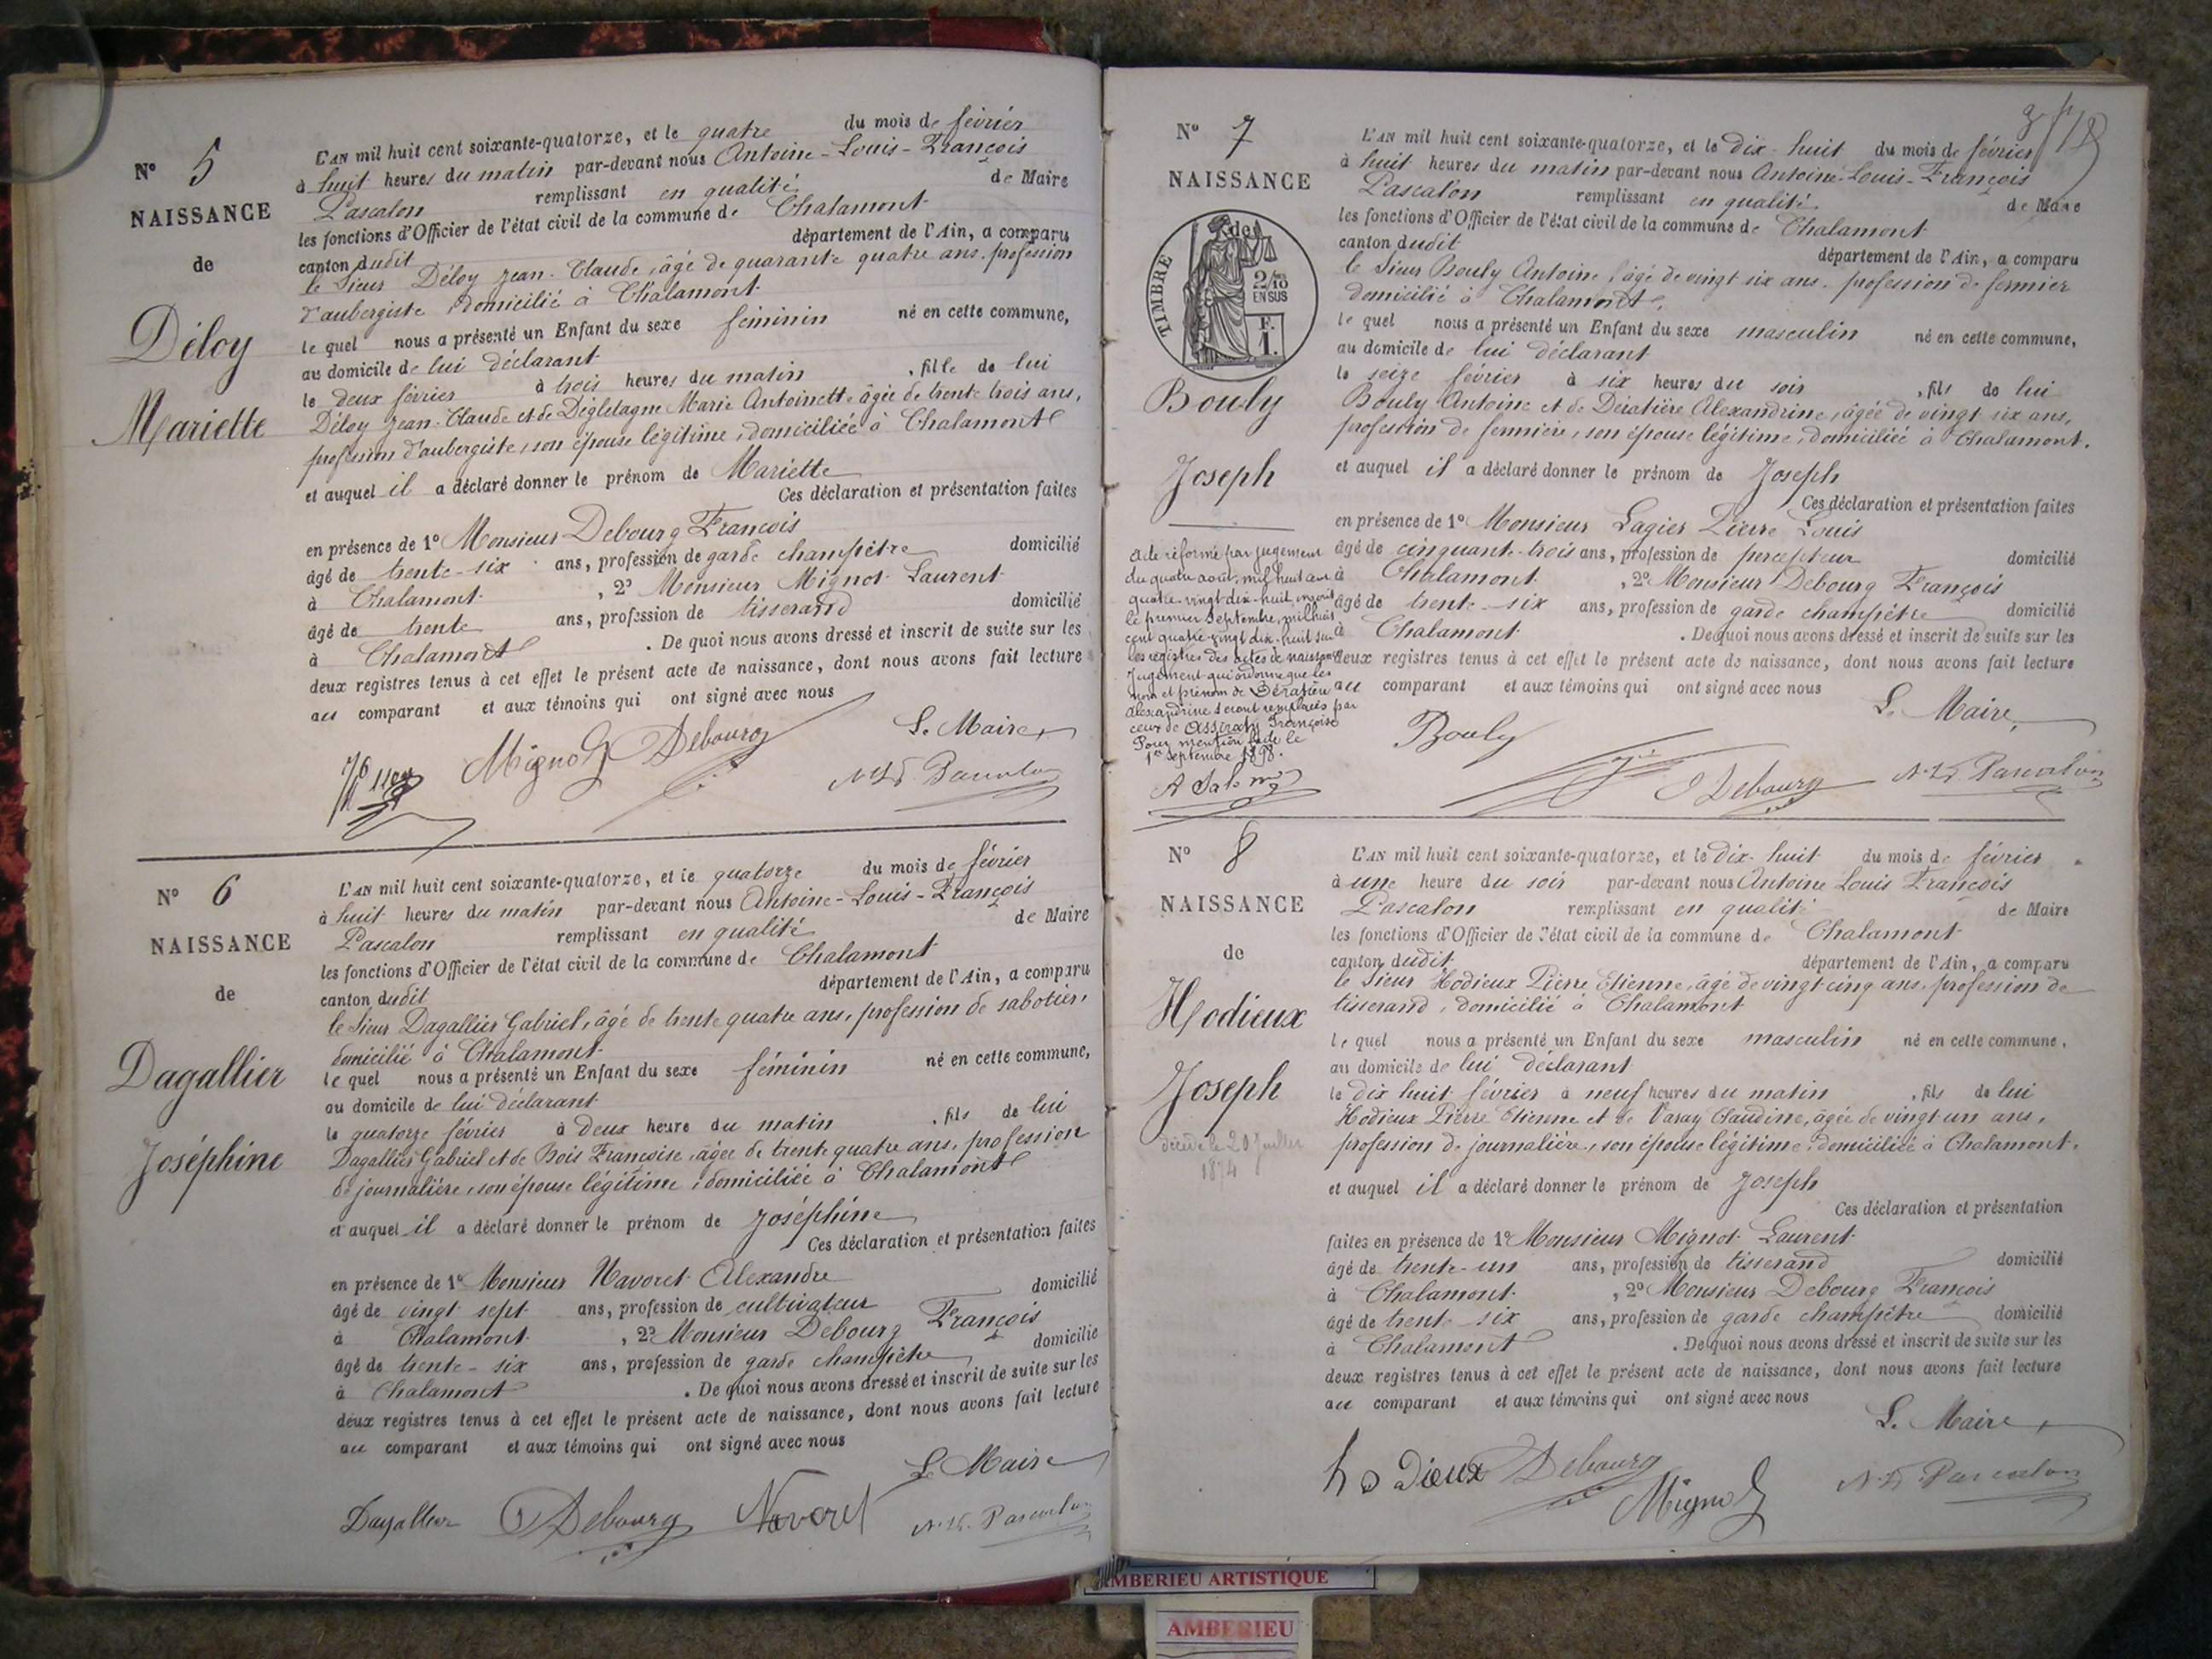 N° 5
NAISSANCE
de
Déloy
Mariette
L'AN mil huit cent soixante-quatorze, et le quatre du mois de février
à huit heures du matin par-devant nous Antoine-Louis-François
Pascalon remplissant en qualité de Maire
les fonctions d'Officier de l'état civil de la commune de Chalamont
canton dudit département de l'Ain, a comparu
le Sieur Déloy Jean-Claude, âgé de quarante quatre ans, profession
d'aubergiste, domicilié à Chalamont
le quel nous a présenté un Enfant du sexe féminin né en cette commune,
au domicile de lui déclarant
le deux février à trois heures du matin, fille de lui
Déloy Jean-Claude et de Dégletagne Marie Antoinette âgée de trente trois ans,
profession d'aubergiste, son épouse légitime, domiciliée à Chalamont
et auquel il a déclaré donner le prénom de Mariette
Ces déclaration et présentation faites
en présence de 1° Monsieur Debourg François
âgé de trente-six ans, profession de garde champêtre domicilié
à Chalamont, 2° Monsieur Mignot Laurent
âgé de trente ans, profession de tisserand domicilié
à Chalamont. De quoi nous avons dressé et inscrit de suite sur les
deux registres tenus à cet effet le présent acte de naissance, dont nous avons fait lecture
au comparant et aux témoins qui ont signé avec nous
Le Maire
Mignot Debourg
Pascalon
N° 6
NAISSANCE
de
Dagallier
Joséphine
L'AN mil huit cent soixante-quatorze, et le quatorze du mois de février
à huit heures du matin par-devant nous Antoine-Louis-François
Pascalon remplissant en qualité de Maire
les fonctions d'Officier de l'état civil de la commune de Chalamont
canton dudit département de l'Ain, a comparu
le Sieur Dagallier Gabriel, âgé de trente quatre ans, profession de sabotier,
domicilié à Chalamont
le quel nous a présenté un Enfant du sexe féminin né en cette commune,
au domicile de lui déclarant
le quatorze février à deux heure du matin, fils de lui
Dagallier Gabriel et de Bois Françoise, âgée de trente quatre ans, profession
de journalière, son épouse légitime, domiciliée à Chalamont
et auquel il a déclaré donner le prénom de Joséphine
Ces déclaration et présentation faites
en présence de 1° Monsieur Navoret Alexandre
âgé de vingt sept ans, profession de cultivateur domicilié
à Chalamont, 2° Monsieur Debourg François
âgé de trente-six ans, profession de garde champêtre domicilié
à Chalamont. De quoi nous avons dressé et inscrit de suite sur les
deux registres tenus à cet effet le présent acte de naissance, dont nous avons fait lecture
au comparant et aux témoins qui ont signé avec nous
Le Maire
Dagallier Debourg Navoret Pascalon
N° 7
NAISSANCE
TIMBRE
de
2/10
EN SUS
F.
1.
Bouly
Joseph
acte réformé par jugement
du quatre août, mil huit cent
quatre-vingt-dix-huit, inscrit
le premier Septembre, mil huit
cent quatre-vingt-dix-huit sur
les registres des actes de naissance
Jugement qui ordonne que les
nom et prénom de Dératière
Alexandrine seront remplacés par
ceux de Assiraty Françoise
Pour mention faite le
1er septembre 1898.
L'AN mil huit cent soixante-quatorze, et le dix-huit du mois de février
à huit heures du matin par-devant nous Antoine-Louis-François
Pascalon remplissant en qualité de Maire
les fonctions d'Officier de l'état civil de la commune de Chalamont
canton dudit département de l'Ain, a comparu
le Sieur Bouly Antoine, âgé de vingt six ans, profession de fermier
domicilié à Chalamont,
le quel nous a présenté un Enfant du sexe masculin né en cette commune,
au domicile de lui déclarant
le seize février à six heures du soir, fils de lui
Bouly Antoine et de Dératière Alexandrine, âgée de vingt six ans,
profession de fermière, son épouse légitime, domiciliée à Chalamont.
et auquel il a déclaré donner le prénom de Joseph
Ces déclaration et présentation faites
en présence de 1° Monsieur Lagier Pierre Louis
âgé de cinquante-trois ans, profession de percepteur domicilié
à Chalamont, 2° Monsieur Debourg François
âgé de trente-six ans, profession de garde champêtre domicilié
à Chalamont. De quoi nous avons dressé et inscrit de suite sur les
deux registres tenus à cet effet le présent acte de naissance, dont nous avons fait lecture
au comparant et aux témoins qui ont signé avec nous
Le Maire,
Bouly
Debourg Pascalon
N° 8
NAISSANCE
de
Hodieux
Joseph
décédé le 20 Juillet
1874
L'AN mil huit cent soixante-quatorze, et le dix-huit du mois de février
à une heure du soir par-devant nous Antoine Louis François
Pascalon remplissant en qualité de Maire
les fonctions d'Officier de l'état civil de la commune de Chalamont
canton dudit département de l'Ain, a comparu
le Sieur Hodieux Pierre Etienne, âgé de vingt-cinq ans, profession de
tisserand, domicilié à Chalamont
le quel nous a présenté un Enfant du sexe masculin né en cette commune,
au domicile de lui déclarant
le dix huit février à neuf heures du matin, fils de lui
Hodieux Pierre Etienne et de Varay Claudine, âgée de vingt un ans,
profession de journalière, son épouse légitime, domiciliée à Chalamont.
et auquel il a déclaré donner le prénom de Joseph
Ces déclaration et présentation
faites en présence de 1° Monsieur Mignot Laurent
âgé de trente-un ans, profession de tisserand domicilié
à Chalamont, 2° Monsieur Debourg François
âgé de trente six ans, profession de garde champêtre domicilié
à Chalamont. De quoi nous avons dressé et inscrit de suite sur les
deux registres tenus à cet effet le présent acte de naissance, dont nous avons fait lecture
au comparant et aux témoins qui ont signé avec nous
Le Maire
hodieux Debourg
Mignot
Pascalon
AMBERIEU ARTISTIQUE
AMBERIEU